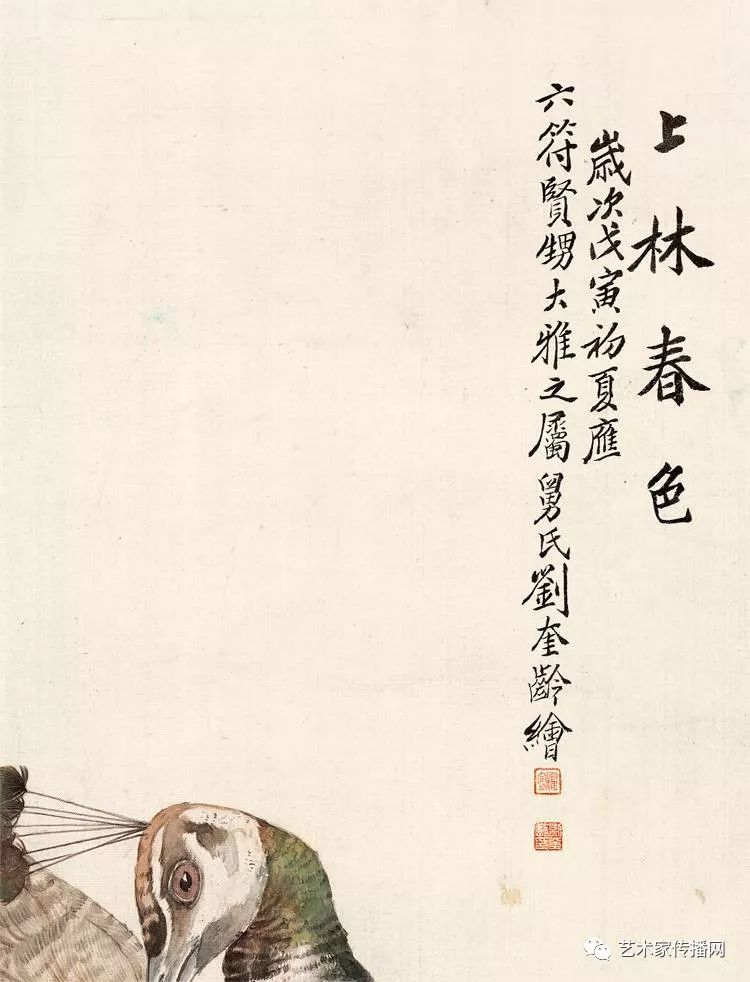 上林春色
歲次戊寅初夏應
六符賢甥大雅之屬舅氏劉奎齡繪
艺术家传播网